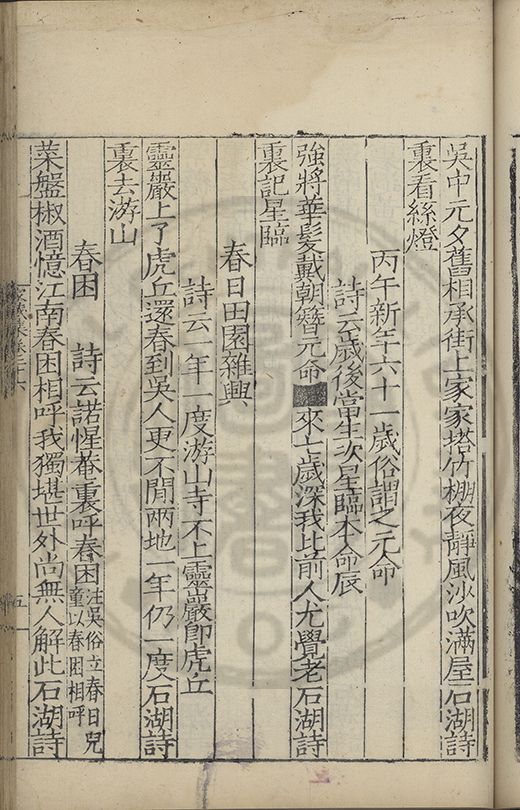 吳中元夕舊相承街上家家塔竹棚夜靜風沙吹滿屋石湖詩
裏看絲燈
丙午新年六十一歲俗謂之元命
詩云歲後當生次星臨本命辰
強將華髮戴朝簪元命來七歲深我比前人尤覺老石湖詩
裏記星臨
春日田園雜興
詩云一年一度游山寺不上靈巖即虎丘
靈巖上了虎丘還春到吳人更不閒兩地一年仍一度石湖詩
裏去游山
春困　詩云諾惺菴裏呼春困注吳俗立春日兒童以春困相呼
菜盤椒酒憶江南春困相呼我獨堪世外尚無人解此石湖詩
五